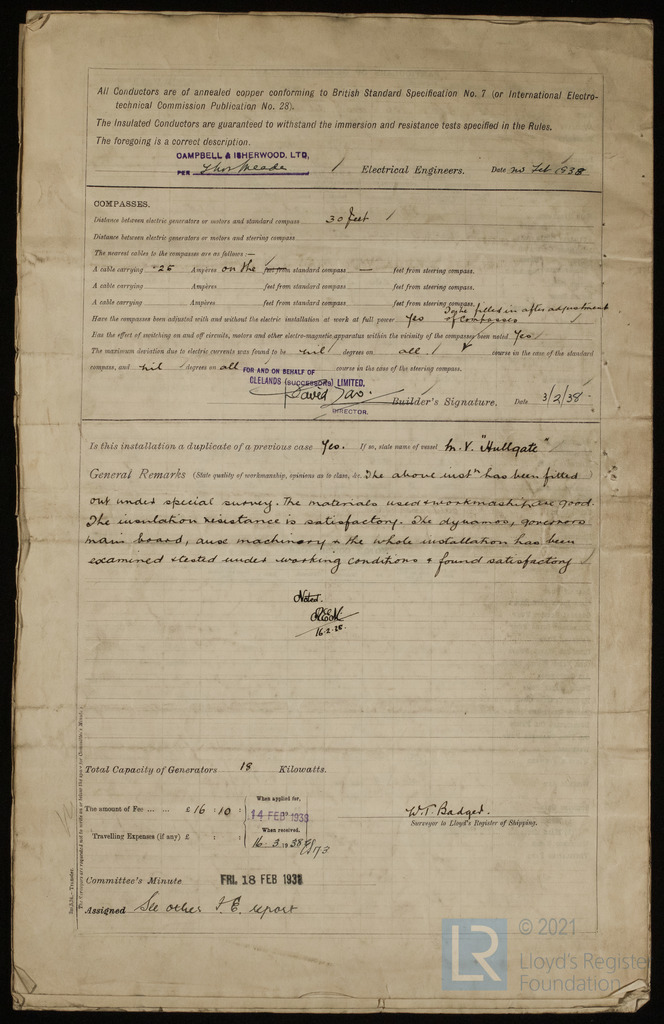 All Conductors are of annealed copper conforming to British Standard Specification No. 7 (or International Electro-
technical Commission Publication No. 28).
The Insulated Conductors are guaranteed to withstand the immersion and resistance tests specified in the Rules.
The foregoing is a correct description.
CAMPBELL & ISHERWOOD, LTD,
PER Electrical Engineers. Date Feb 1938
COMPASSES.
Distance between electric generators or motors and standard compass 30 feet
Distance between electric generators or motors and steering compass
The nearest cables to the compasses are as follows:—
A cable carrying .25 Ampères on the feet from standard compass — feet from steering compass.
A cable carrying Ampères feet from standard compass feet from steering compass.
A cable carrying Ampères feet from standard compass feet from steering compass.
Have the compasses been adjusted with and without the electric installation at work at full power Yes To be filled in after adjustment of Compasses
Has the effect of switching on and off circuits, motors and other electro-magnetic apparatus within the vicinity of the compasses been noted Yes
The maximum deviation due to electric currents was found to be nil degrees on all course in the case of the standard
compass, and nil degrees on all course in the case of the steering compass.
FOR AND ON BEHALF OF
CLELANDS (SUCCESSORS) LIMITED,
Builder's Signature. Date 3/2/38
DIRECTOR.
Is this installation a duplicate of a previous case Yes. If so, state name of vessel M.V. "Hullgate"
General Remarks (State quality of workmanship, opinions as to class, &c. The above instn has been fitted
out under special survey. The materials used & workmanship are good.
The insulation resistance is satisfactory. The dynamos, governors
main board, aux machinery & the whole installation has been
examined & tested under working conditions & found satisfactory
Noted.
16.2.38.
Total Capacity of Generators 18 Kilowatts.
The amount of Fee ... ... £ 16 : 10 :
When applied for,
14 FEB 1938
Travelling Expenses (if any) £ : :
When received.
16. 3. 1938
W.T. Badger.
Surveyor to Lloyd's Register of Shipping.
Committee's Minute FRI. 18 FEB 1938
Assigned See other F.E. report
LR
© 2021
Lloyd's Register
Foundation